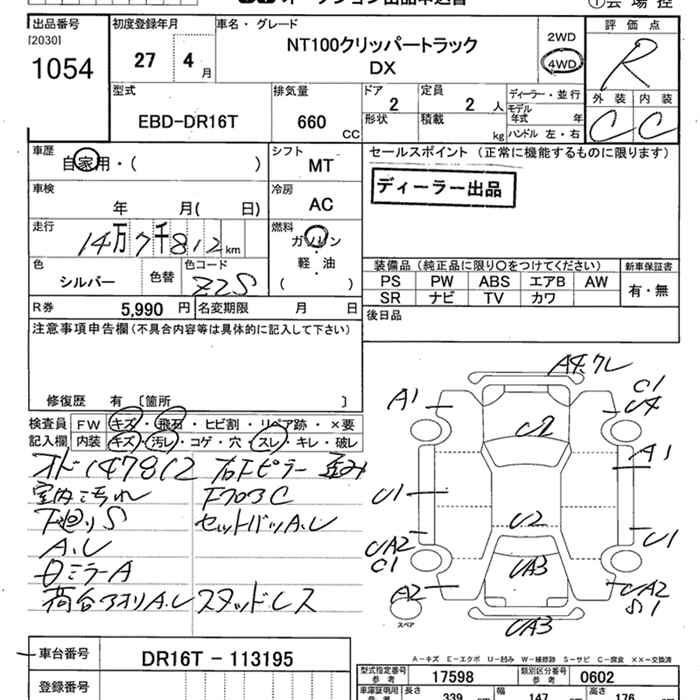 出品番号 初度登録年月 車名・グレード 評価点
[2030]
1054
27 4月
NT100クリッパートラック
DX
2WD
4WD
R
外装 内装
C C
型式 排気量 ドア 定員 ディーラー・並行
EBD-DR16T 660 CC 2 2 人
モデル年式 年
形状 積載 kg ハンドル 左・右
車歴 シフト セールスポイント (正常に機能するものに限ります)
自家用・( ) MT
ディーラー出品
車検 冷房
年 月( 日) AC
走行 燃料
14万7千812km ガソリン
軽・油
( )
色 シルバー 色替 色コード Z2S
装備品 (純正品に限り○をつけてください) 新車保証書
PS PW ABS エアB AW 有・無
SR ナビ TV カワ
R券 5,990 円 名変期限 月 日
後日品
注意事項申告欄(不具合内容等は具体的に記入して下さい)
修復歴 有 〔箇所 〕
検査員 FW キズ・飛石・ヒビ割・リペア跡・×要
記入欄 内装 キズ・汚レ・コゲ・穴・スレ・キレ・破レ
オド147812 右Fピラー歪み
室内汚れ FフロアC
下廻りS セットバックA.U
A.U
ミラーA
荷台アオリA.U スタッドレス
A1
U2
C1
U4
A1
U1
U2
U1
UA2
C1
UA3
UA2
S1
A2
スペア
UA3
A-キズ E-エクボ U-凹み W-補修跡 S-サビ C-腐食 ××-交換済
車台番号 DR16T - 113195
型式指定番号 参考 17598 類別区分番号 参考 0602
登録番号
長さ 339 幅 147 高さ 176